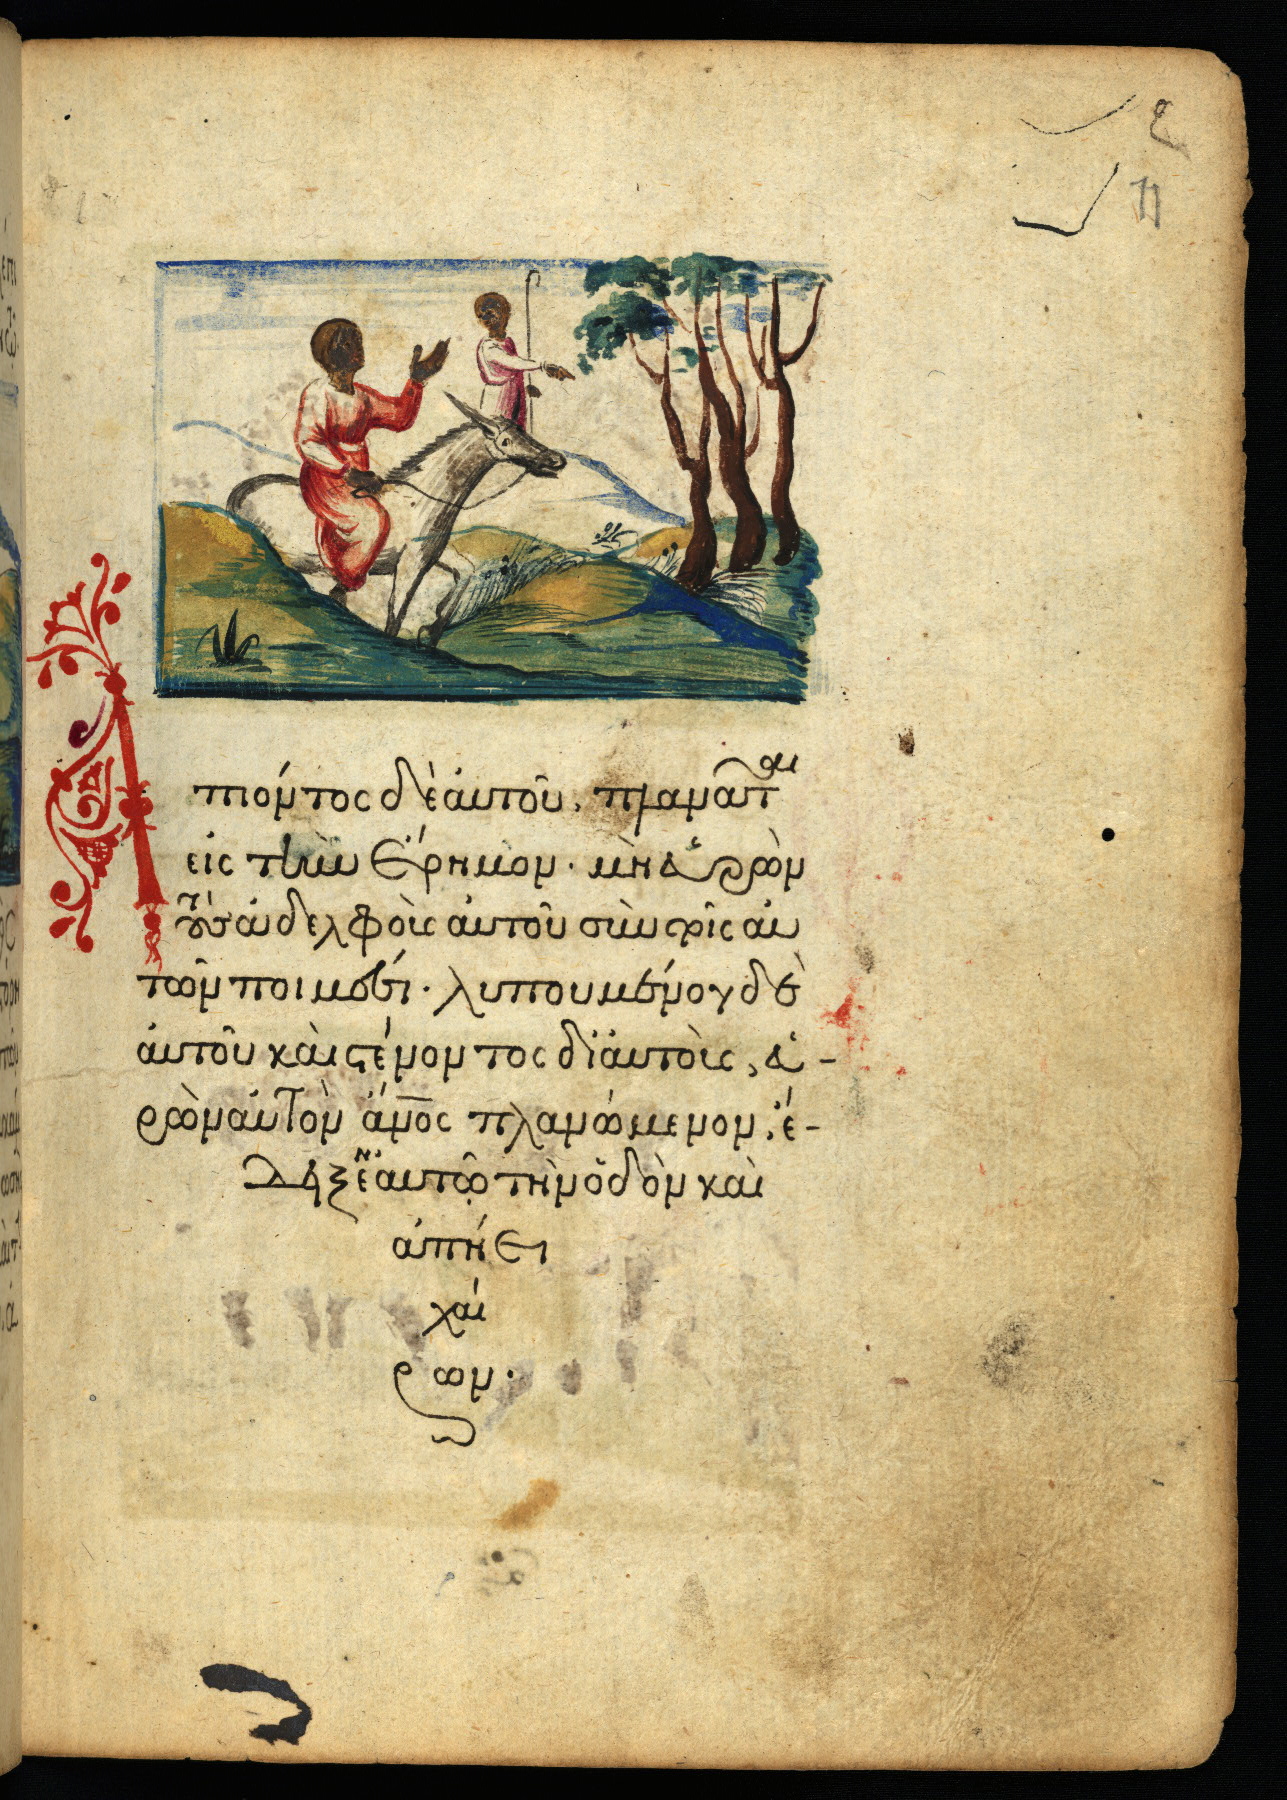 Ἀπιόντος δὲ αὐτοῦ, πλανᾶται
εἰς τὴν ἔρημον· μὴ εὑρὼν
τοὺς ἀδελφοὺς αὐτοῦ σὺν τοῖς αὐ
τῶν ποιμέσι· λυπουμένου δὲ
αὐτοῦ καὶ στένοντος δι' αὐτοὺς, εὑ-
ρὼν αὐτὸν ἄνος πλανώμενον, ἔ-
δειξεν αὐτῷ τὴν ὁδὸν καὶ
ἀπήει
χαί
ρων.